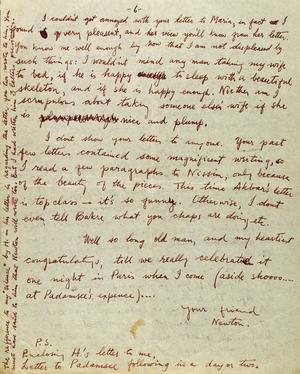 - 6 -
I couldn't get annoyed with your letter to Maria, in fact I
found it very pleasant, and her view you'll know from her letter.
You know me well enough by now that I am not displeased by
such things: I wouldn't mind any man taking my wife
to bed, if he is happy to sleep with a beautiful
skeleton, and if she is happy enough. Neither am I
scrupulous about taking someone else's wife if she
is nice and plump.
I dont show your letters to anyone. Your past
few letters contained some magnificent writing, so
I read a few paragraphs to Nissim, only because
of the beauty of the pieces. This time Akbar's letter
is top-class - it's so funny. Otherwise, I dont
even tell Bakre what you chaps are doing etc.
Well so long old man, and my heartiest
congratulations, till we really celebrate it
one night in Paris when I come (aside shoooo....
at Padamsee's expence)...
Your friend
Newton.
P.S.
Enclosing H.'s letter to me.
Letter to Padamsee following in a day or two.
The reference to my "silence" by H. in his letter is regarding the letter you